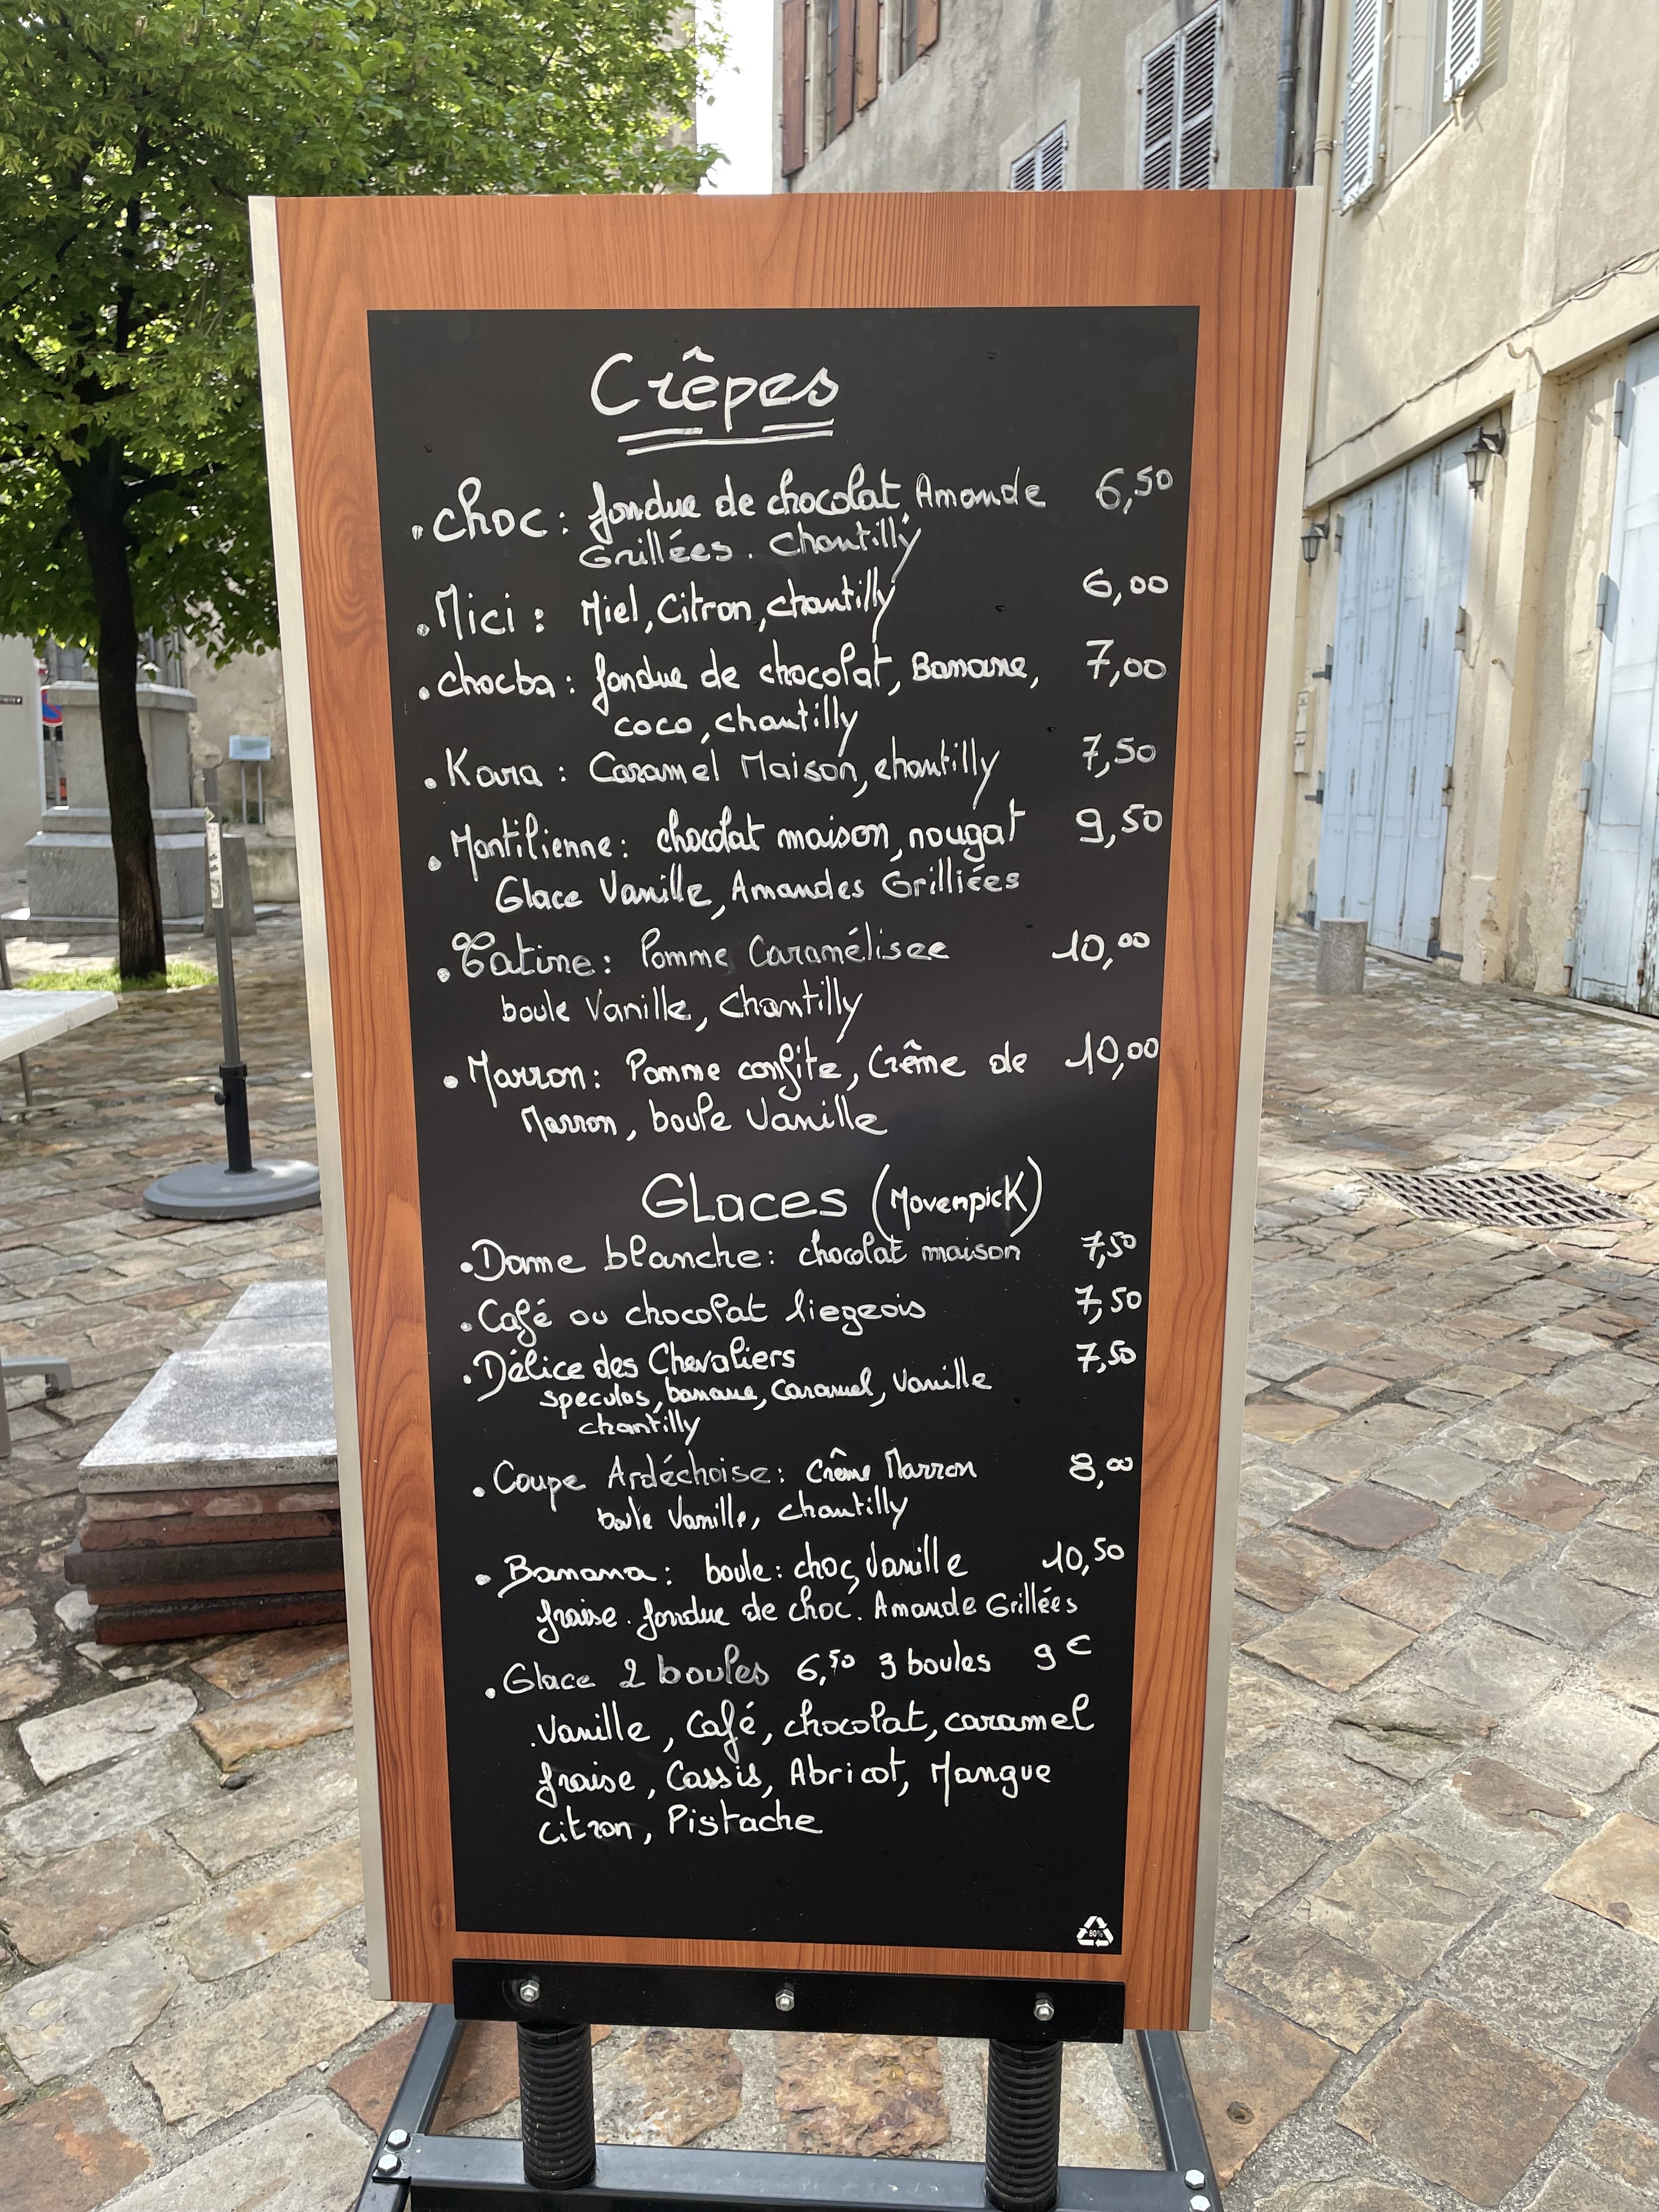 Crêpes
.Choc : fondue de chocolat, Amande 6,50
Grillées. Chantilly
.Mici : Miel, Citron, chantilly 6,00
.chocba : fondue de chocolat, Banane, 7,00
coco, chantilly
.Kara : Caramel Maison, chantilly 7,50
.Montilienne : chocolat maison, nougat 9,50
Glace Vanille, Amandes Grilliées
.Tatine : Pomme Caramélisee 10,00
boule Vanille, Chantilly
.Marron : Pomme confite, Crême de 10,00
Marron, boule Vanille
GLaces (MovenpicK)
.Dame blanche : chocolat maison 7,50
.Café ou chocolat liegeois 7,50
.Délice des Chevaliers 7,50
speculos, banane, Caramel, Vanille
chantilly
.Coupe Ardéchoise : Crême Marron 8,00
boule Vanille, chantilly
.Banana : boule : choc, Vanille 10,50
fraise. fondue de choc. Amande Grillées
.Glace 2 boules 6,50 3 boules 9 €
.Vanille, Café, chocolat, caramel
fraise, Cassis, Abricot, Mangue
citron, Pistache
80%